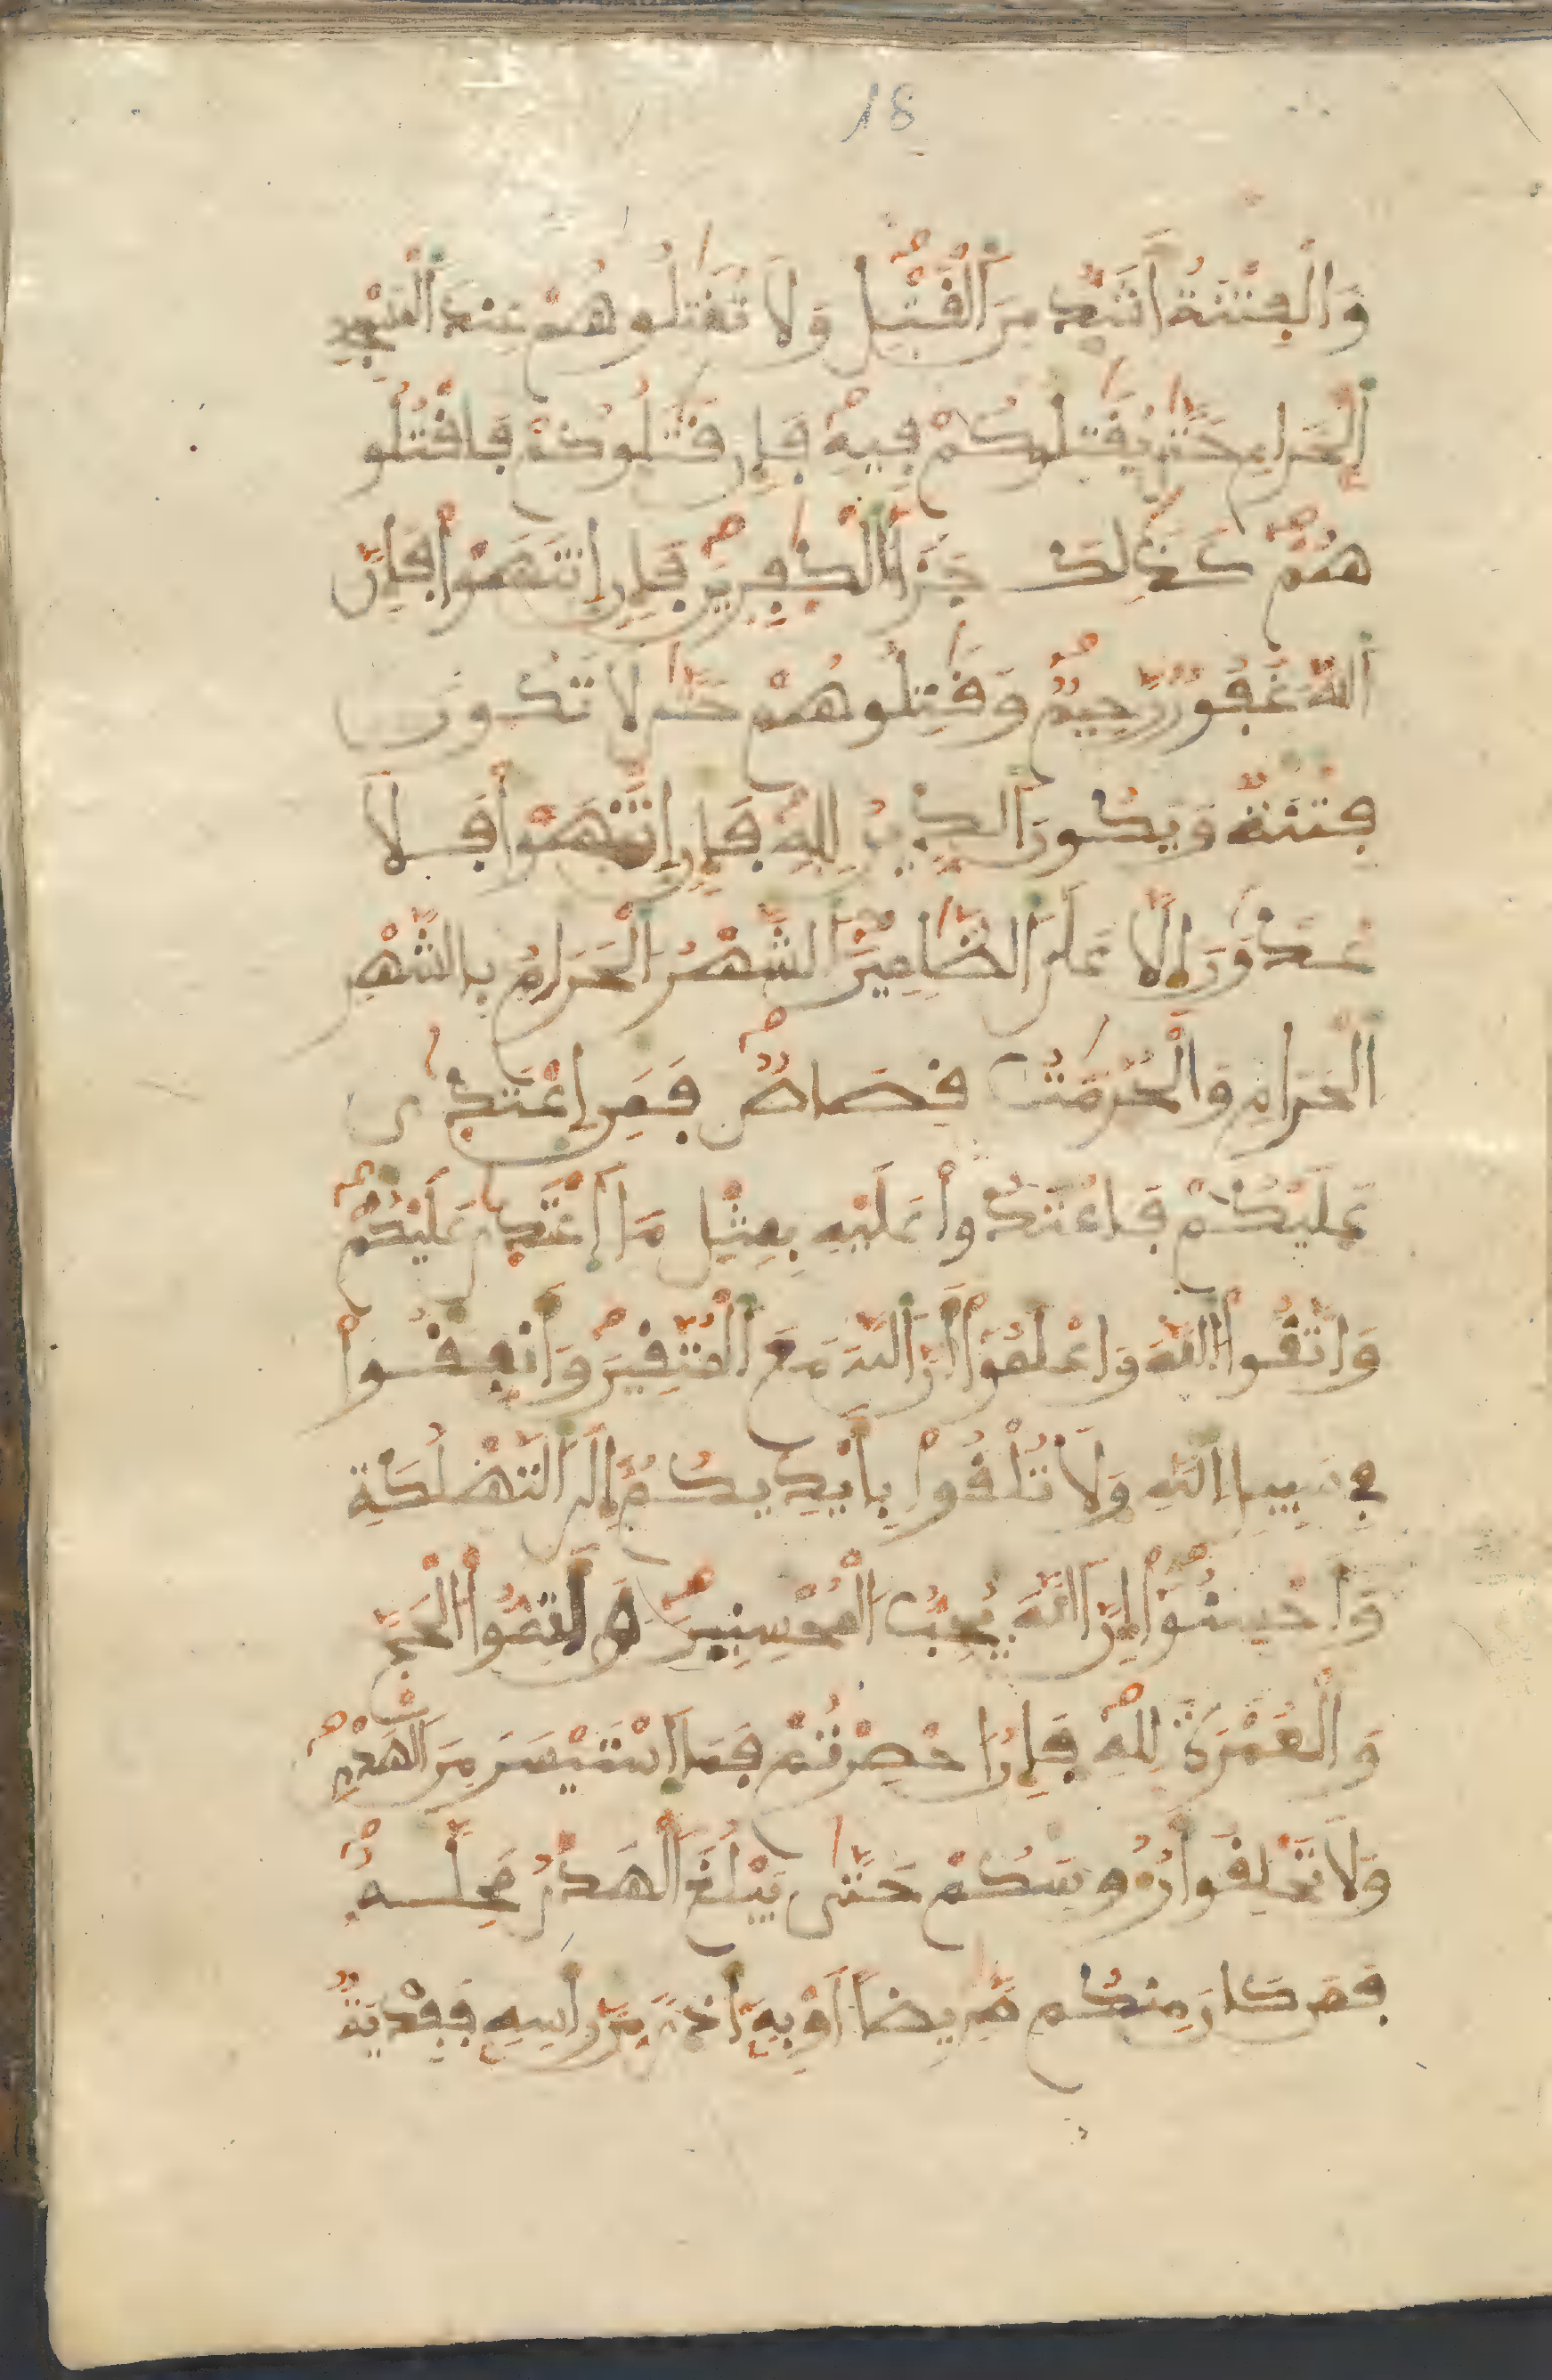 18
وَالْفِتْنَةُ أَشَدُّ مِنَ الْقَتْلِ وَلَا تُقَٰتِلُوهُمْ عِندَ الْمَسْجِدِ
الْحَرَامِ حَتَّىٰ يُقَٰتِلُوكُمْ فِيهِ فَإِن قَٰتَلُوكُمْ فَاقْتُلُو
هُمْ كَذَٰلِكَ جَزَاءُ الْكَٰفِرِينَ فَإِنِ انتَهَوْا فَإِنَّ
اللَّهَ غَفُورٌ رَّحِيمٌ وَقَٰتِلُوهُمْ حَتَّىٰ لَا تَكُونَ
فِتْنَةٌ وَيَكُونَ الدِّينُ لِلَّهِ فَإِنِ انتَهَوْا فَلَا
عُدْوَٰنَ إِلَّا عَلَى الظَّٰلِمِينَ الشَّهْرُ الْحَرَامُ بِالشَّهْرِ
الْحَرَامِ وَالْحُرُمَٰتُ قِصَاصٌ فَمَنِ اعْتَدَىٰ
عَلَيْكُمْ فَاعْتَدُوا عَلَيْهِ بِمِثْلِ مَا اعْتَدَىٰ عَلَيْكُمْ
وَاتَّقُوا اللَّهَ وَاعْلَمُوا أَنَّ اللَّهَ مَعَ الْمُتَّقِينَ وَأَنفِقُوا
فِي سَبِيلِ اللَّهِ وَلَا تُلْقُوا بِأَيْدِيكُمْ إِلَى التَّهْلُكَةِ
وَأَحْسِنُوا إِنَّ اللَّهَ يُحِبُّ الْمُحْسِنِينَ وَأَتِمُّوا الْحَجَّ
وَالْعُمْرَةَ لِلَّهِ فَإِنْ أُحْصِرْتُمْ فَمَا اسْتَيْسَرَ مِنَ الْهَدْيِ
وَلَا تَحْلِقُوا رُءُوسَكُمْ حَتَّىٰ يَبْلُغَ الْهَدْيُ مَحِلَّهُ
فَمَن كَانَ مِنكُم مَّرِيضًا أَوْ بِهِ أَذًى مِّن رَّأْسِهِ فَفِدْيَةٌ